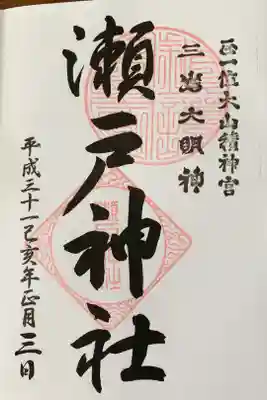 正一位大山積神宮
三嶌大明神
瀬戸神社
平成三十一己亥年正月三日